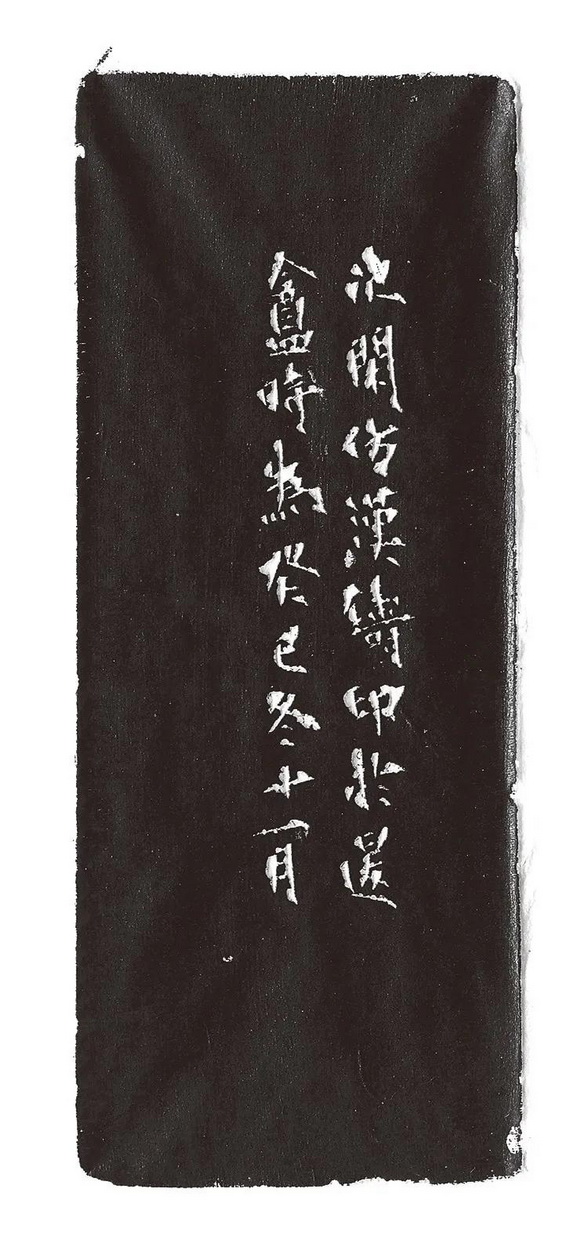 次閑仿漢鑄印於退
盦時為癸巳冬十一月